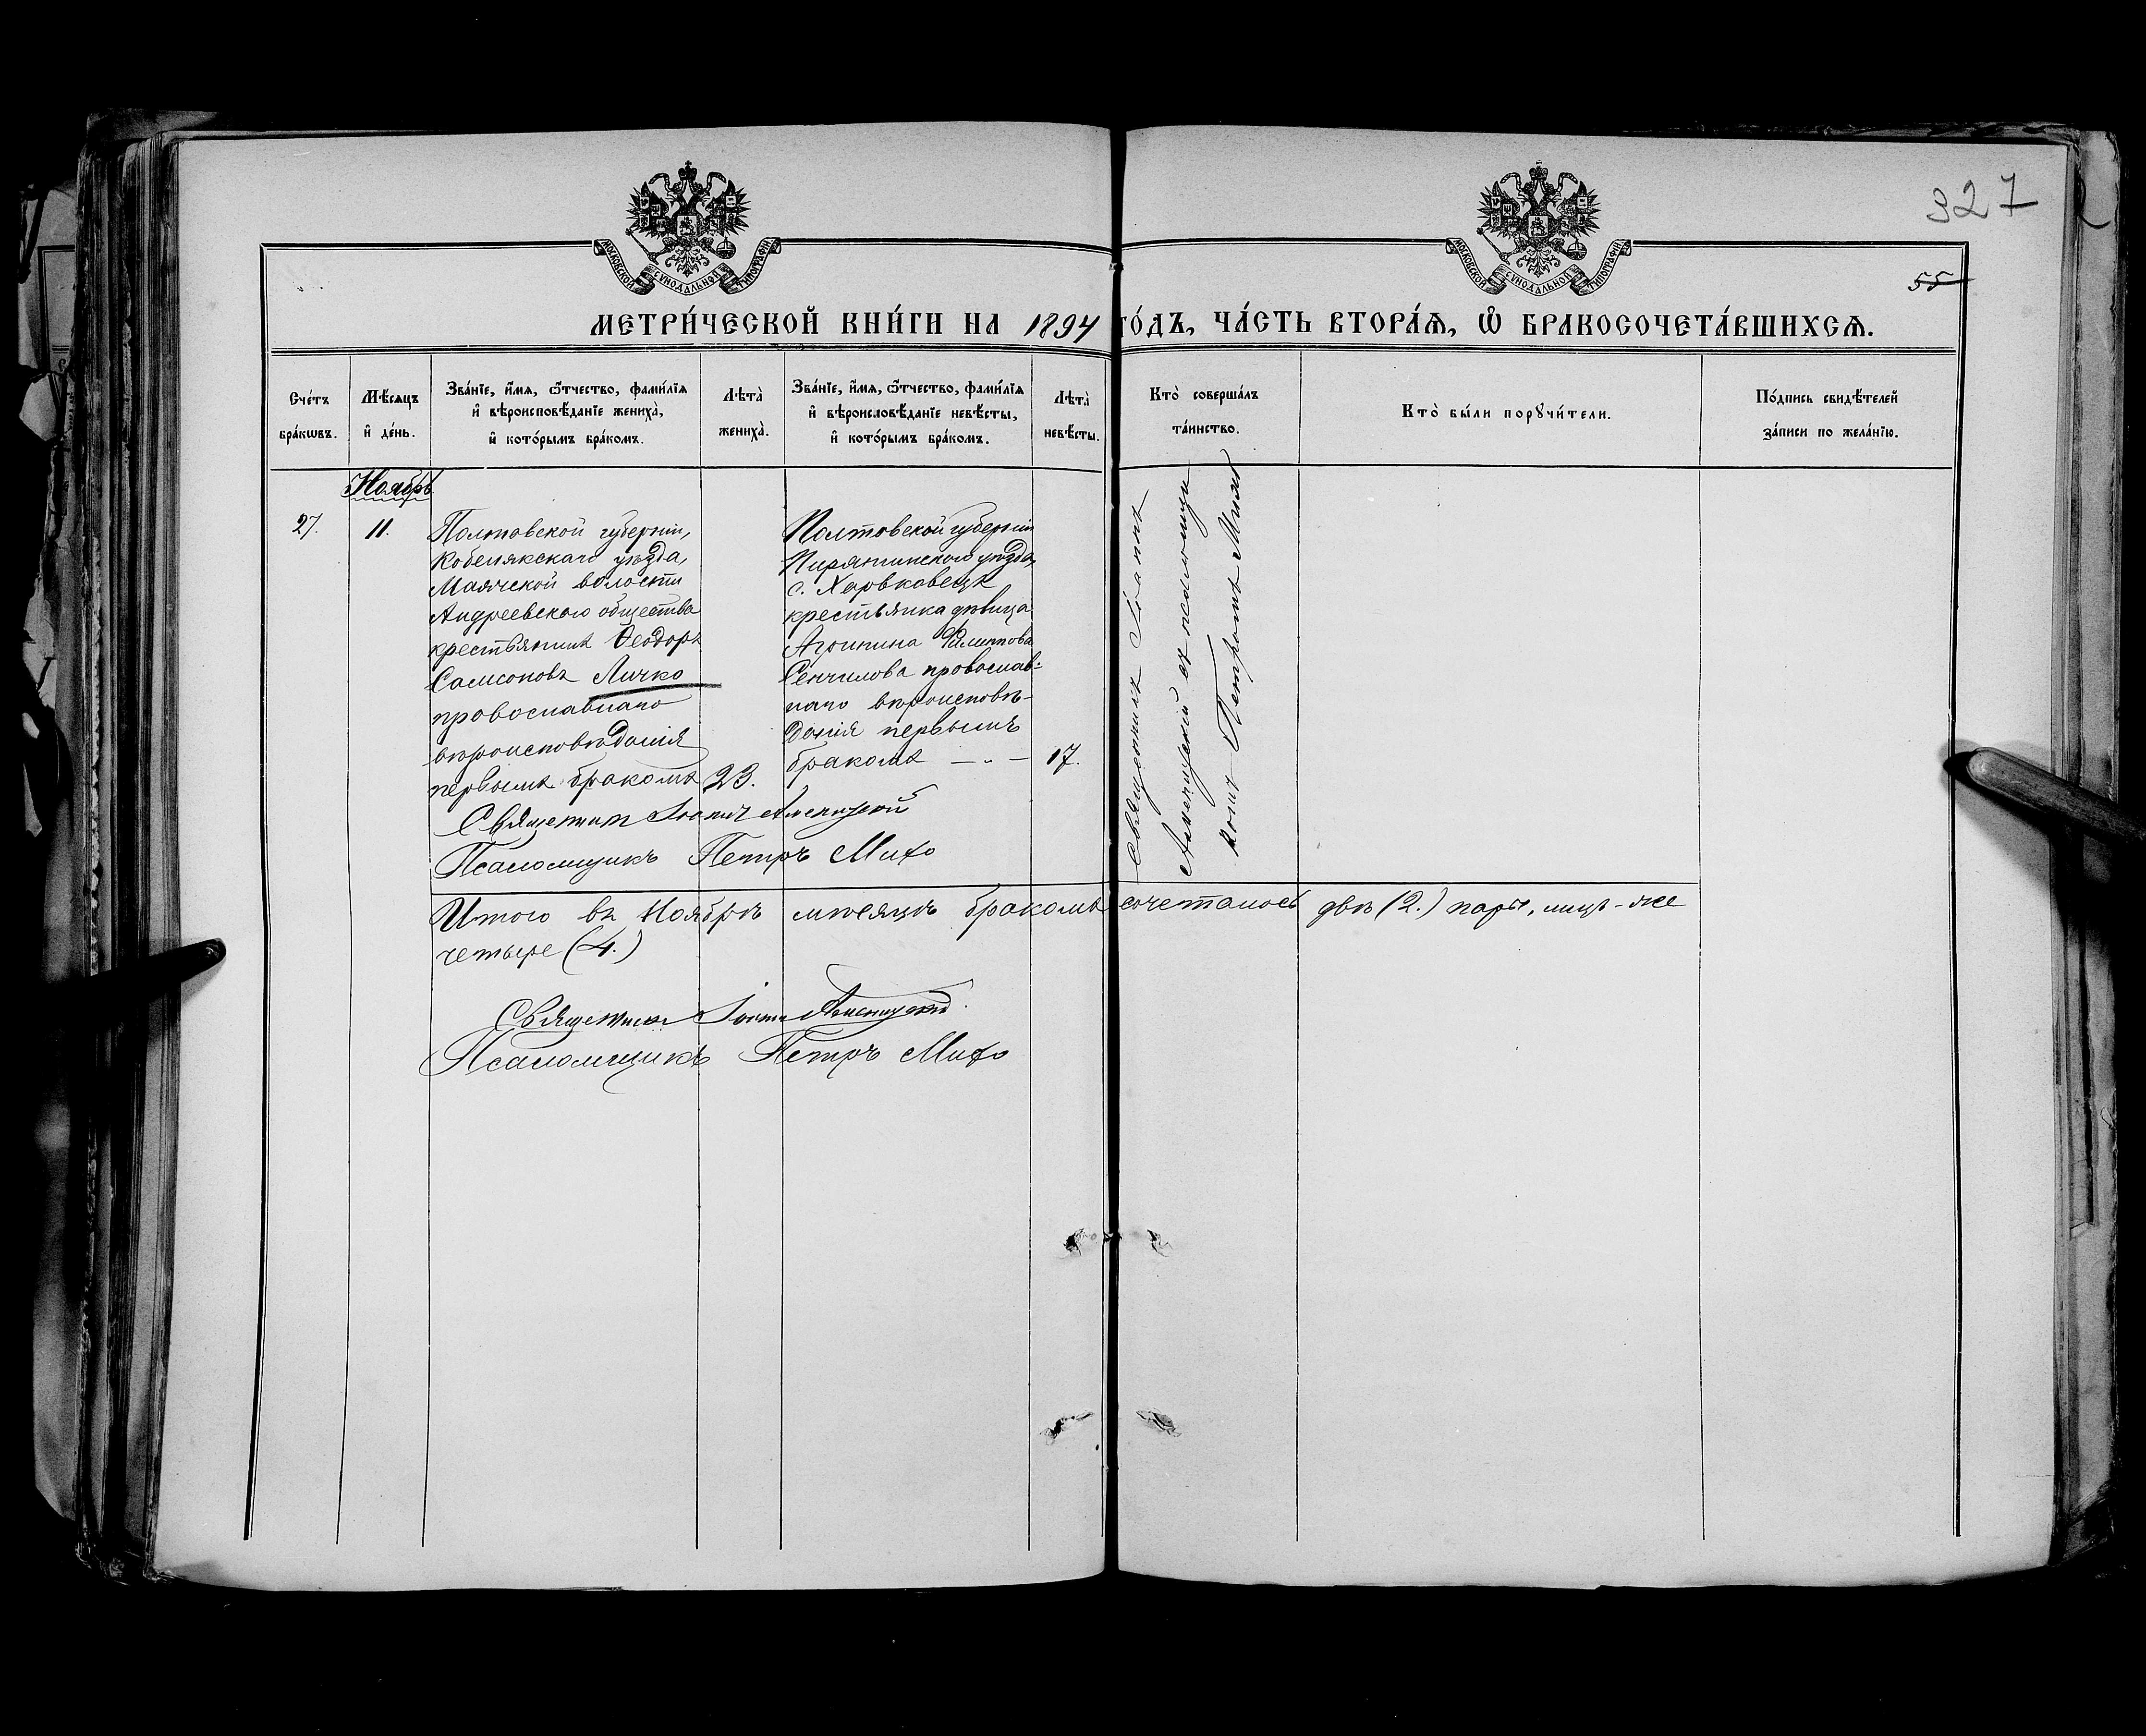 327
55
МОСКОВСКОЙ СѴНОДАЛЬНОЙ ТИПОГРАФІИ
МОСКОВСКОЙ СѴНОДАЛЬНОЙ ТИПОГРАФІИ
МЕТРИ́ЧЕСКОЙ КНИ́ГИ НА 1894 ГО́ДЪ, ЧА́СТЬ ВТОРА́Ѧ, Ѽ БРАКОСОЧЕТА́ВШИХСѦ.
Сче́тъ
бра́кѡвъ.
Мѣ́сяцъ
и҆ де́нь.
Зва́нїе, и҆́мя, ѻ҆́тчество, фами́лїя
и҆ вѣроисповѣ́данїе жениха̀,
и҆ кото́рымъ бра́комъ.
Лѣта̀
жениха̀.
Зва́нїе, и҆́мя, ѻ҆́тчество, фами́лїя
и҆ вѣроисповѣ́данїе невѣ́сты,
и҆ кото́рымъ бра́комъ.
Лѣта̀
невѣ́сты.
Кто̀ соверша́лъ
та́инство.
Кто̀ бы́ли порꙋчи́тели.
По́дпись свидѣ́телей
за́писи по жела́нїю.
Ноябрь
27.
11.
Полтавской губерніи,
Кобелякскаго уѣзда,
Маячской волости
Андреевскаго общества
крестьянинъ Ѳеодоръ
Самсоновъ Личко
православнаго
вѣроисповѣданія
первымъ бракомъ
23.
Полтавской губерніи
Пирятинскаго уѣзда,
с. Харьковецъ
крестьянка дѣвица
Агрипина Филиппова
Сенчилова православ-
наго вѣроисповѣ-
данія первымъ
бракомъ — „ —
17.
Священникъ Іоаннъ
съ псаломщи
комъ Петромъ
Священникъ Іоаннъ
Псаломщикъ Петръ Михо
Итого въ Ноябрѣ мѣсяцѣ бракомъ сочеталось двѣ (2.) пары, лицъ-же
четыре (4.)
Священникъ Іоаннъ
Псаломщикъ Петръ Михо